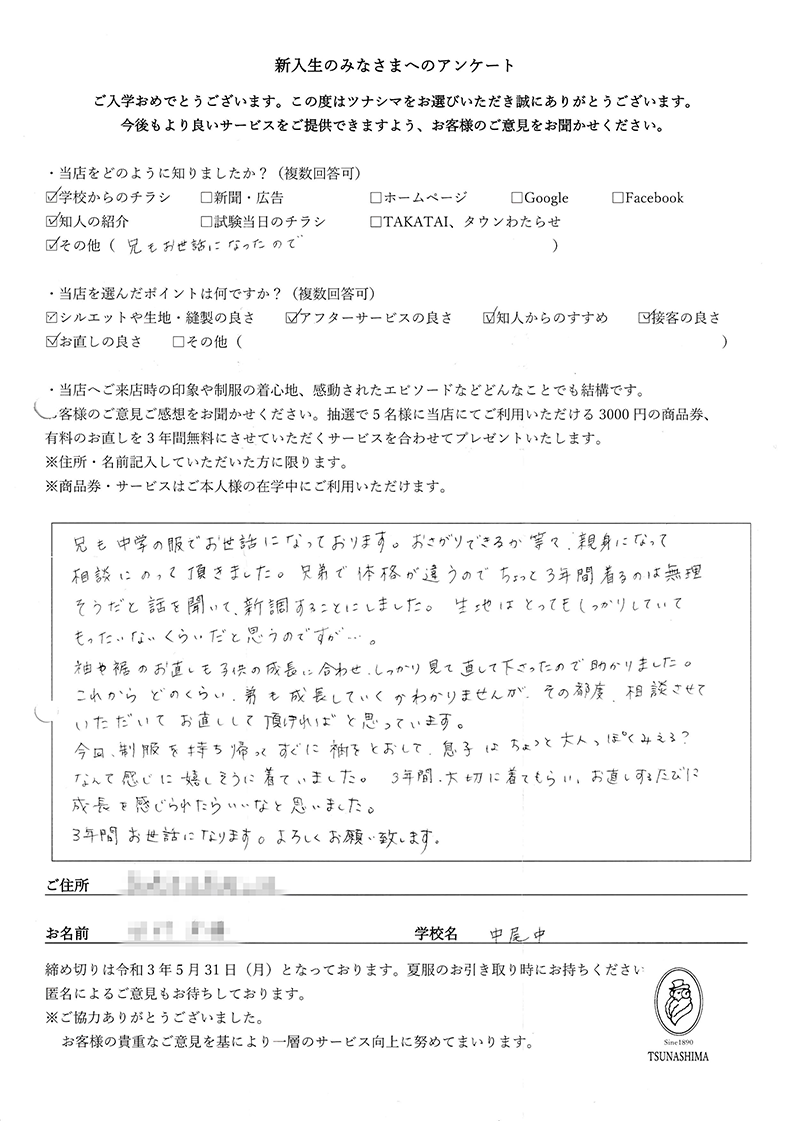 新入生のみなさまへのアンケート
ご入学おめでとうございます。この度はツナシマをお選びいただき誠にありがとうございます。
今後もより良いサービスをご提供できますよう、お客様のご意見をお聞かせください。
・当店をどのように知りましたか？（複数回答可）
☑学校からのチラシ □新聞・広告 □ホームページ □Google □Facebook
☑知人の紹介 □試験当日のチラシ □TAKATAI、タウンわたらせ
☑その他（ 兄もお世話になったので ）
・当店を選んだポイントは何ですか？（複数回答可）
☑シルエットや生地・縫製の良さ ☑アフターサービスの良さ ☑知人からのすすめ ☑接客の良さ
☑お直しの良さ □その他（ ）
・当店へご来店時の印象や制服の着心地、感動されたエピソードなどどんなことでも結構です。
客様のご意見ご感想をお聞かせください。抽選で5名様に当店にてご利用いただける3000円の商品券、
有料のお直しを3年間無料にさせていただくサービスを合わせてプレゼントいたします。
※住所・名前記入していただいた方に限ります。
※商品券・サービスはご本人様の在学中にご利用いただけます。
兄も中学の服でお世話になっております。おさがりできるか等で、親身になって
相談にのって頂きました。兄弟で体格が違うのでちょっと3年間着るのは無理
そうだと話を聞いて、新調することにしました。生地はとってもしっかりしていて
もったいないくらいだと思うのですが…。
袖や裾のお直しも子供の成長に合わせ、しっかり見て直して下さったので助かりました。
これからどのくらい、弟も成長していくかわかりませんが、その都度、相談させて
いただいてお直しして頂ければと思っています。
今回、制服を持ち帰ってすぐに袖をとおして、息子はちょっと大人っぽくみえる？
なんて感じに嬉しそうに着ていました。3年間、大切に着てもらい、お直しするたびに
成長を感じられたらいいなと思いました。
3年間お世話になります。よろしくお願い致します。
ご住所
お名前 学校名 中尾中
締め切りは令和3年5月31日（月）となっております。夏服のお引き取り時にお持ちくださ
匿名によるご意見もお待ちしております。
※ご協力ありがとうございました。
お客様の貴重なご意見を基により一層のサービス向上に努めてまいります。
Sine1890
TSUNASHIMA